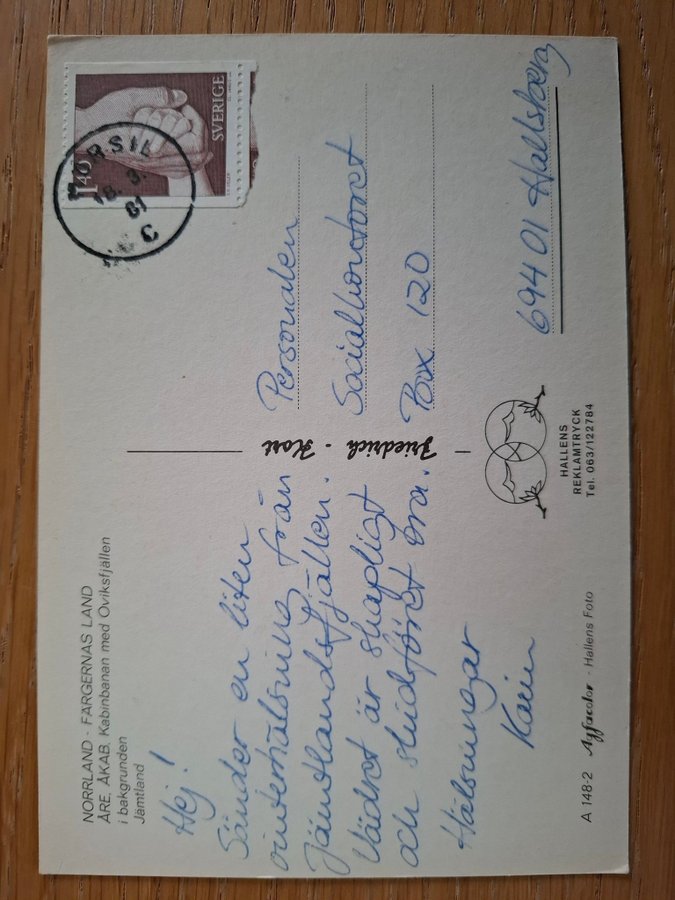 NORRLAND - FÄRGERNAS LAND
ÅRE. ÅKAB. Kabinbanan med Oviksfjällen
i bakgrunden
Jämtland
Hej!
Sänder en liten
vinterhälsning från
Jämtlandsfjällen.
Vädret är skapligt
och skidföret bra.
Hälsningar
Karin
A 148-2 Agfacolor - Hallens Foto
Friedrich - Kort
HALLENS
REKLAMTRYCK
Tel. 063/122784
SVERIGE
1.40
MÖRSIL
18. 3.
81
C
Personalen
Socialkontoret
Box 120
694 01 Hallsberg